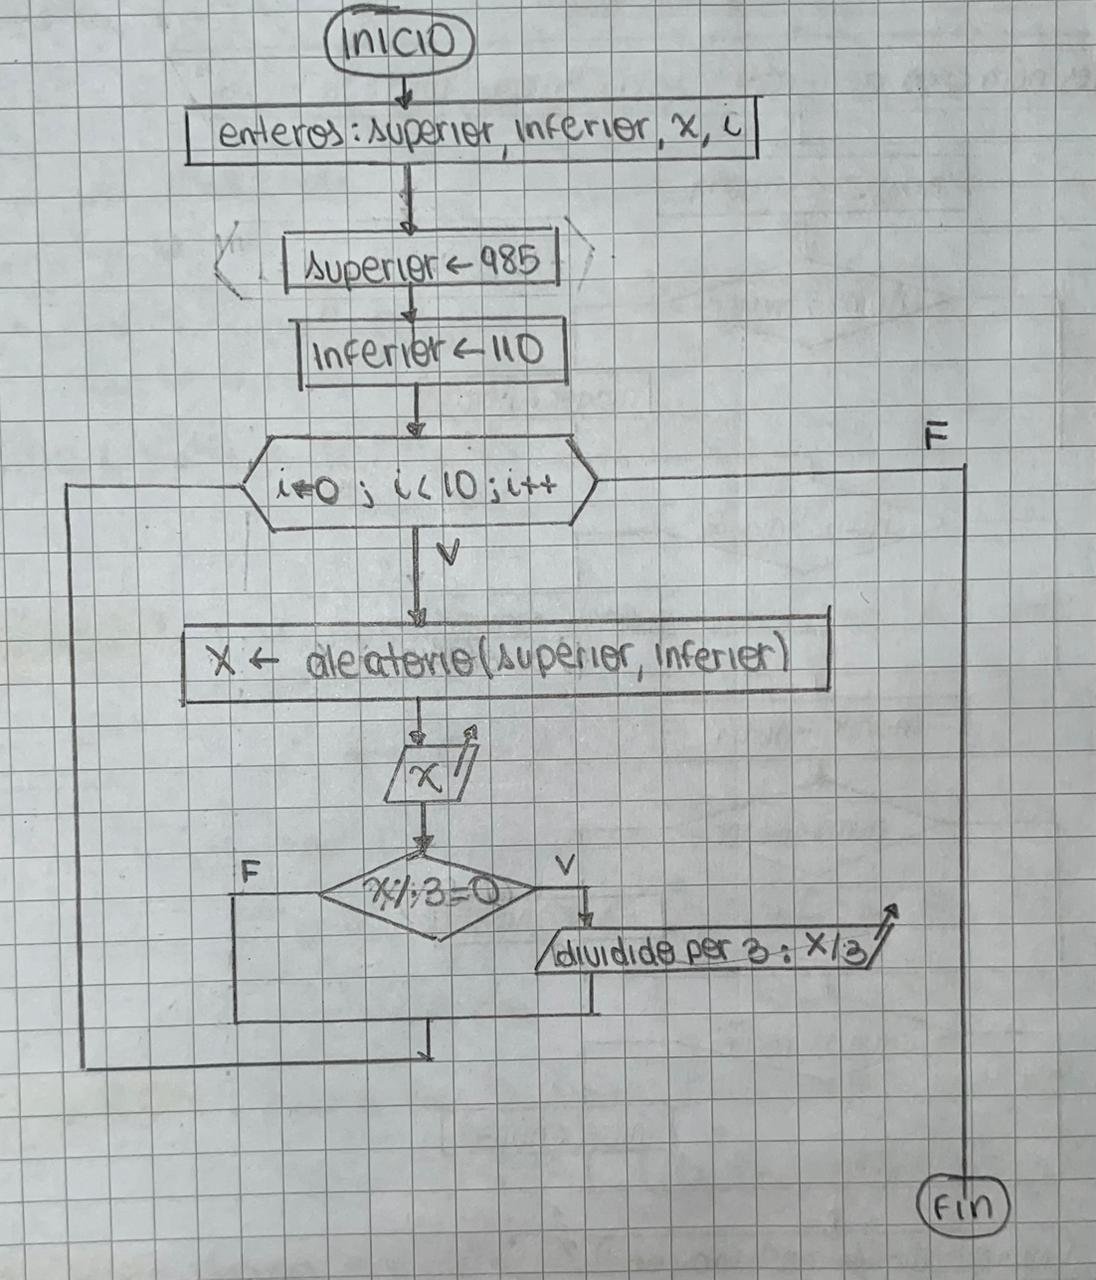 INICIO
enteros: superior, inferior, x, i
superior ← 985
inferior ← 110
F
i←0 ; i < 10 ; i++
V
X ← aleatorio(superior, inferior)
x
F
V
x%3=0
dividido por 3 : x/3
Fin